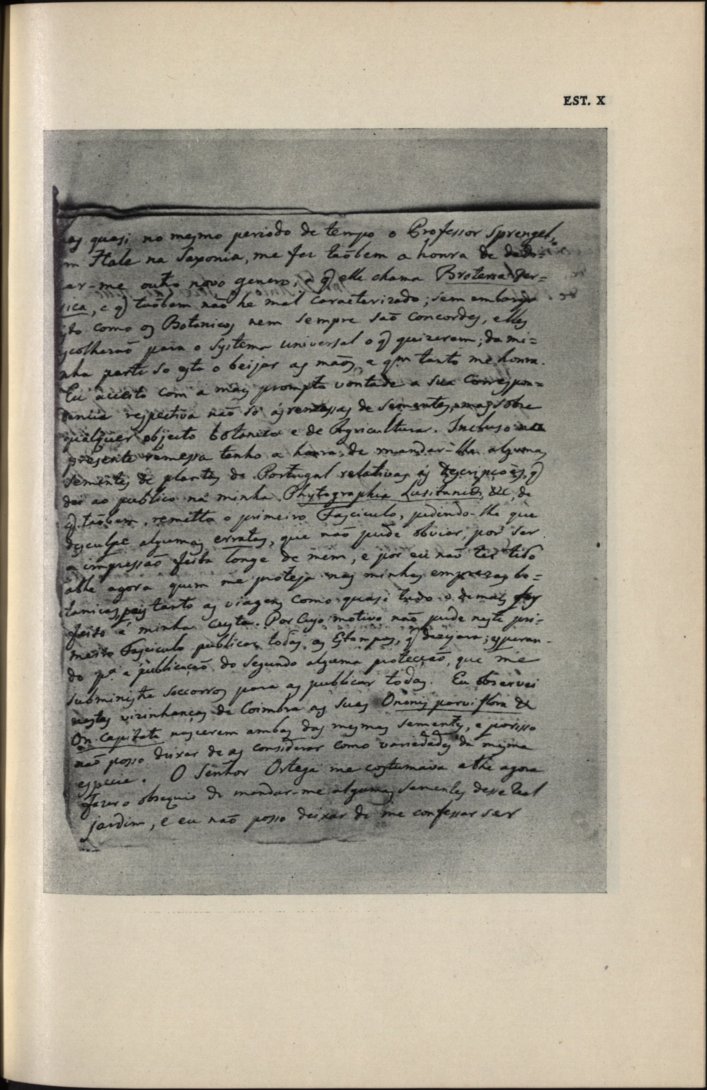 EST. X
as quasi no mesmo periodo de tempo o Professor Sprengel,
m Hale na Saxonia, me fez taõbem a honra de dedi-
ar-me outro novo genero, q̃ elle chama Brotera
, e q̃ taõbem não he mal caracterizado; sem embargo
do como os Botanicos nem sempre saõ concordes, elles
scolheraõ para o Systema universal o q̃ quizerem; da mi-
nha parte só esta o beijar as mãos, a qm tanto me honra.
Eu aceito com a mais prompta vontade a sua correspon-
dencia respectiva não só ás remessas de sementes, mas sobre
qualquer objecto botanico e de Agricultura. Incluso na
presente remessa tenho a honra de mandar-lhe algumas
sementes de plantas de Portugal relativas ás Descripçoẽs, q̃
dei ao publico na minha Phytographia Lusitanica &c, de
q̃ taõbem remetto o primeiro Fasciculo, pedindo-lhe que
desculpe algumas erratas, que não pude obviar por ser
a impressão feita longe de mim, e por eu não ter tido
athe agora quem me proteja nas minhas emprezas bo-
tanicas, pois tanto as viagens como quasi tudo o de mais
feito á minha custa. Por cujo motivo não pude neste pri-
meiro Fasciculo publicar todas as Estampas, q̃ dezejara; esperan-
do pa a publicação do segundo alguma protecção, que me
subministre soccorros para as publicar todas. Eu observei
nestas vizinhanças de Coimbra as suas Ononis parviflora &
On. Capitata nascerem ambas das mesmas sementes, e porisso
não posso deixar de as considerar como variedades da mesma
especie. O Senhor Ortega me costumava athe agora
fazer o obsequio de mandar-me algumas sementes desse Real
jardim, e eu não posso deixar de me confessar ser